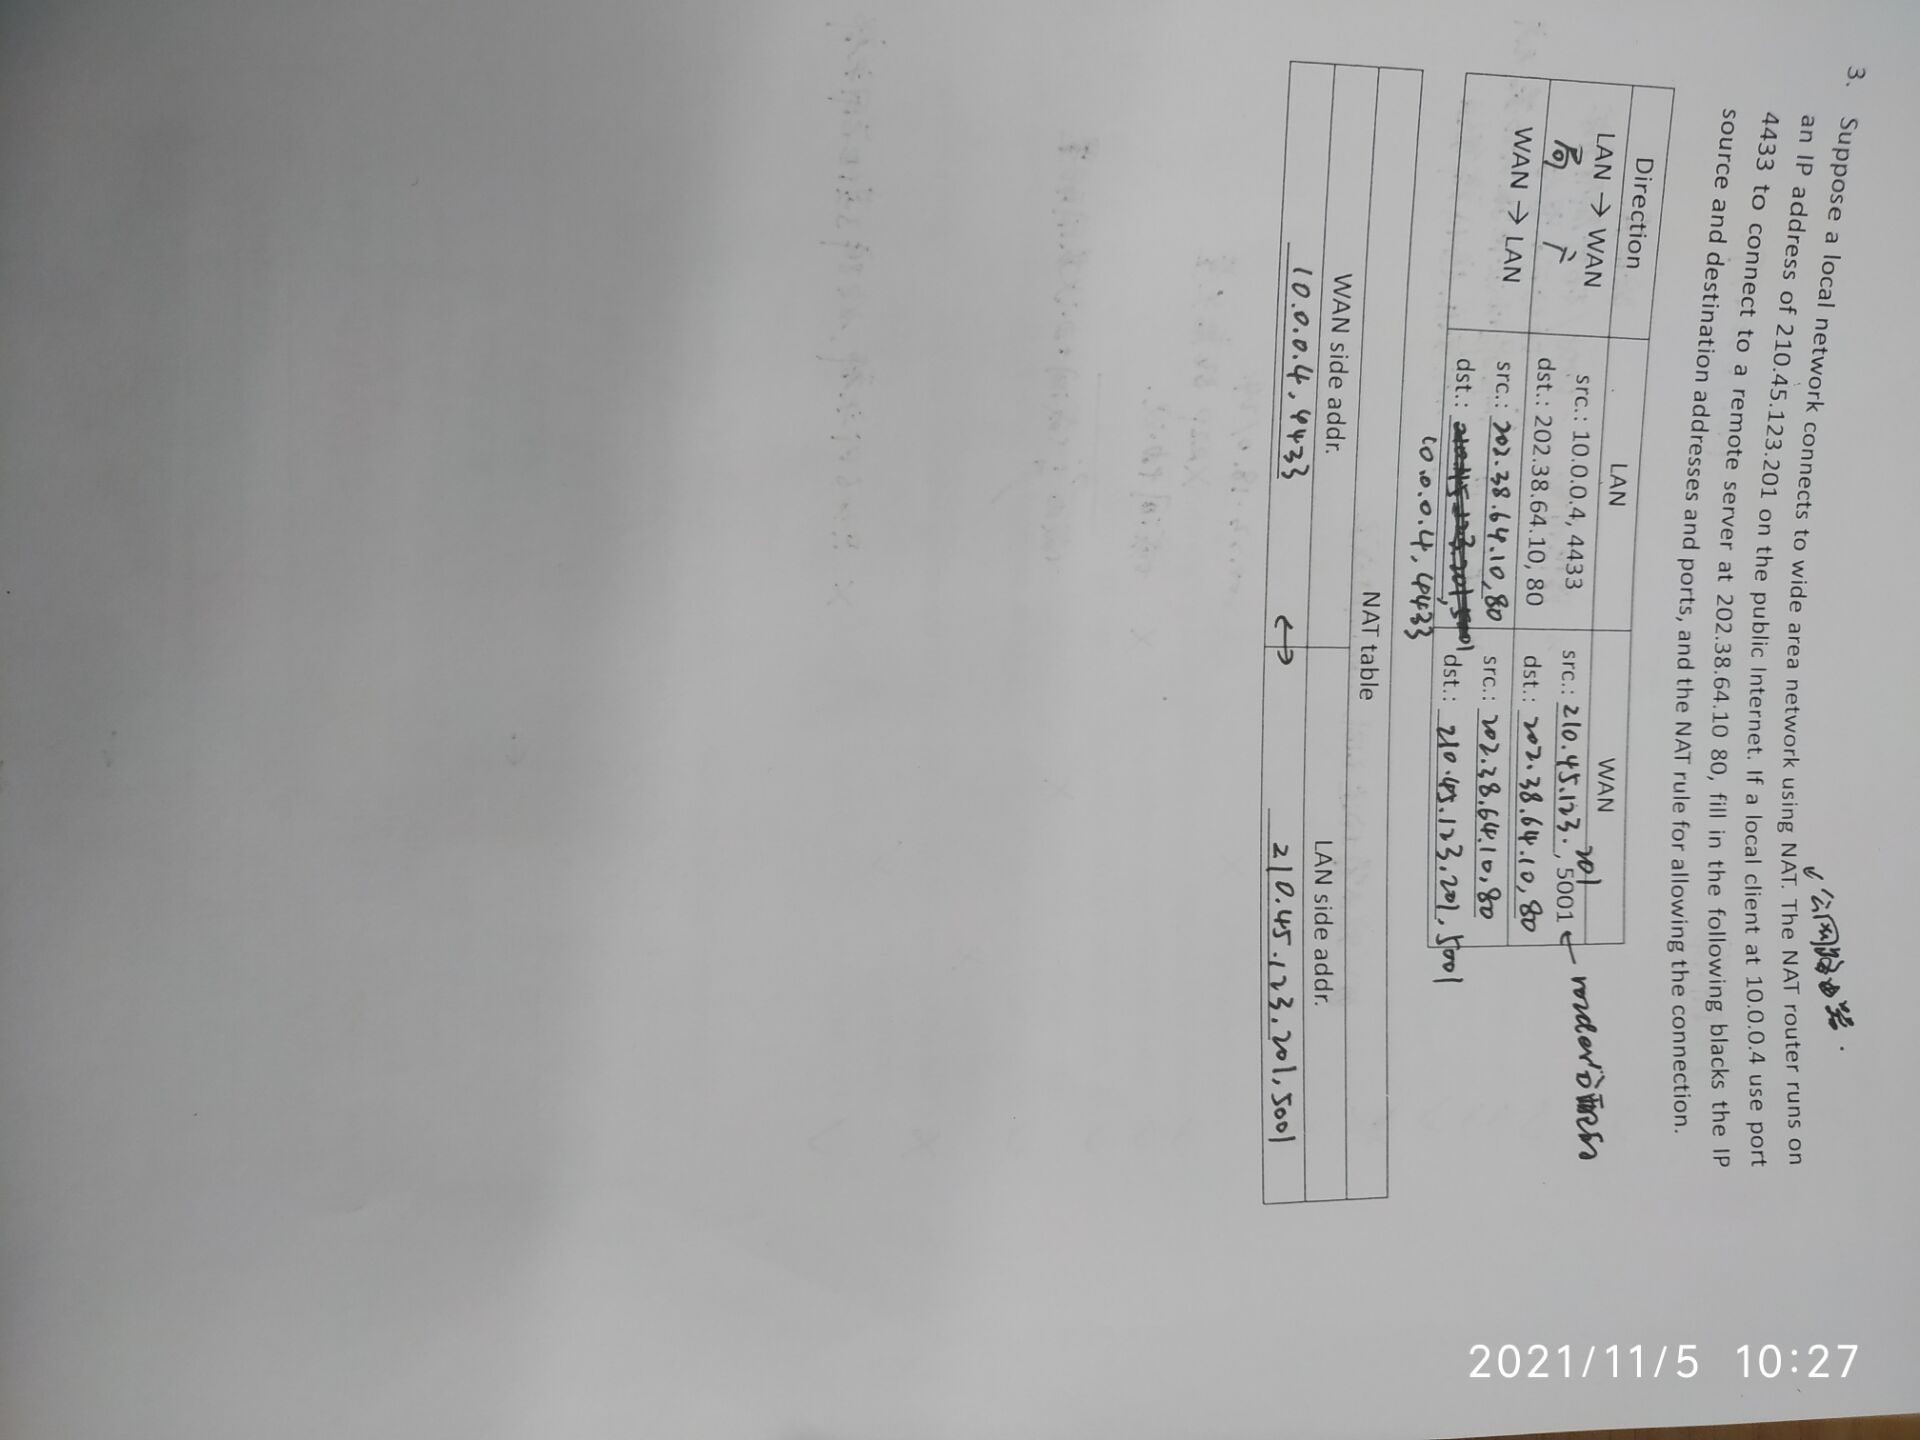 公网路由器.
3. Suppose a local network connects to wide area network using NAT. The NAT router runs on
an IP address of 210.45.123.201 on the public Internet. If a local client at 10.0.0.4 use port
4433 to connect to a remote server at 202.38.64.10 80, fill in the following blacks the IP
source and destination addresses and ports, and the NAT rule for allowing the connection.
Direction LAN WAN
LAN → WAN src.: 10.0.0.4, 4433 src.: 210.45.123.201, 5001 ← 分配的
局 广 dst.: 202.38.64.10, 80 dst.: 202.38.64.10, 80
WAN → LAN src.: 202.38.64.10, 80 src.: 202.38.64.10, 80
dst.: 210.45.123.201, 5001 dst.: 210.45.123.201, 5001
10.0.0.4, 4433
NAT table
WAN side addr. LAN side addr.
10.0.0.4, 4433 ↔ 210.45.123.201, 5001
2021/11/5 10:27